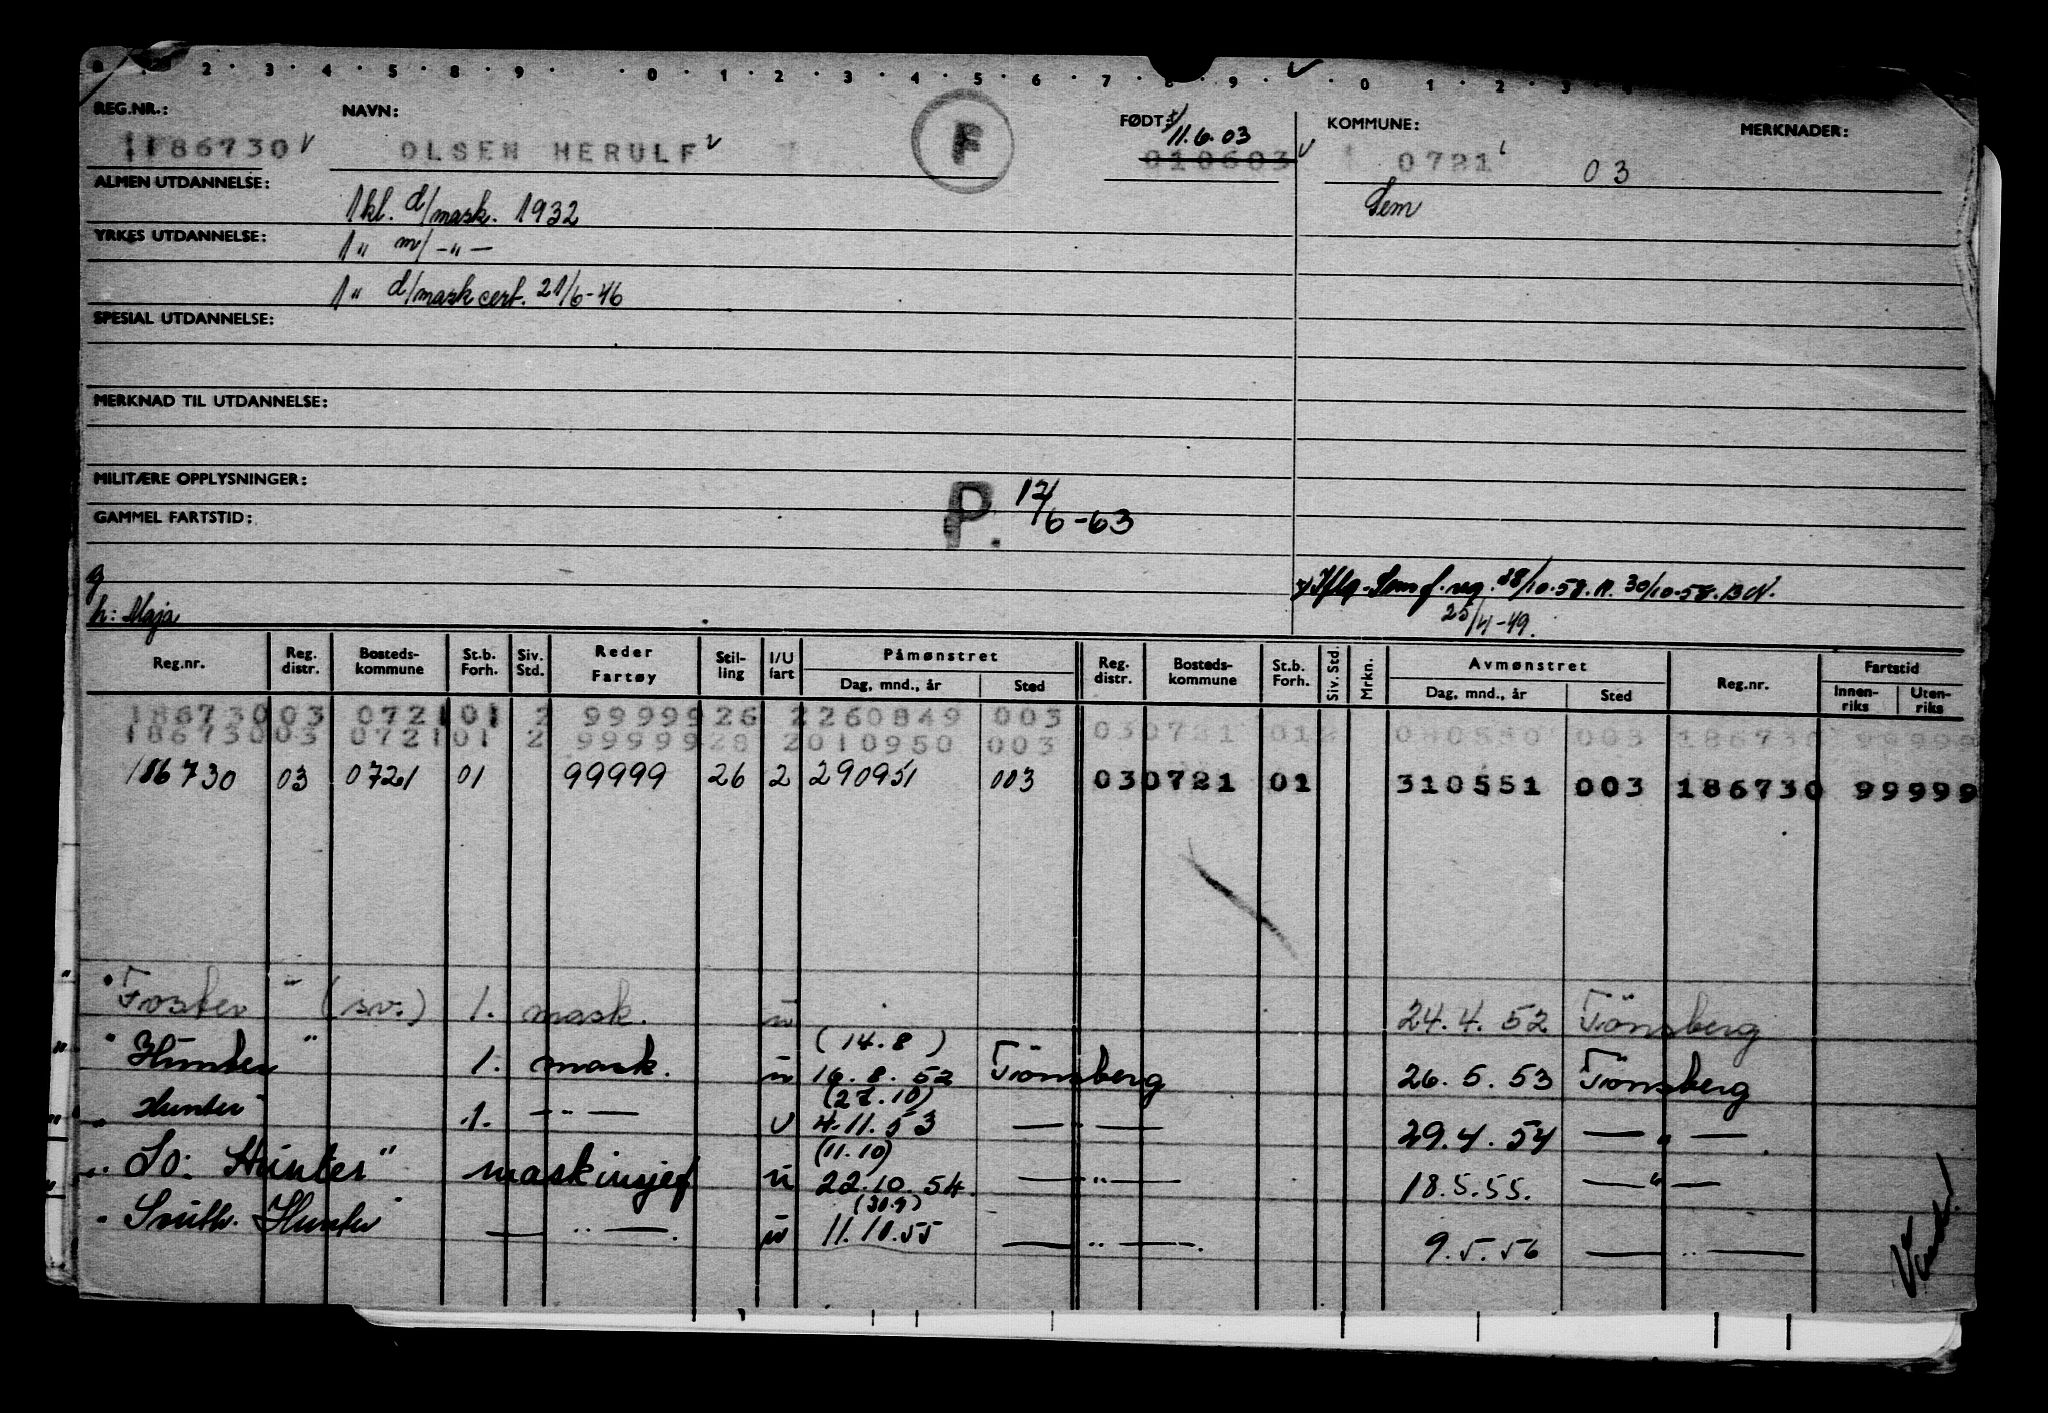 REG.NR.: NAVN: FØDT: KOMMUNE: MERKNADER:
186730 OLSEN HERULF F 11.6.03 010603 0721 03
Sem
ALMEN UTDANNELSE: 1 kl. d/mask. 1932
YRKES UTDANNELSE: 1 " m/ - " -
1 " d/mask cert. 21/6-46
SPESIAL UTDANNELSE:
MERKNAD TIL UTDANNELSE:
MILITÆRE OPPLYSNINGER:
GAMMEL FARTSTID:
P. 12/6-63
g
h: Maja
28/10-58. 30/10-58. BN.
25/4-49.
Reg.nr. Reg. distr. Bosteds- kommune St.b. Forh. Siv. Std. Reder Fartøy Stil- ling I/U fart Påmønstret Dag, mnd., år Sted Reg. distr. Bosteds- kommune St.b. Forh. Siv. Std. Mrkn. Avmønstret Dag, mnd., år Sted Reg.nr. Fartstid Innen- riks Uten- riks
186730 03 0721 01 2 99999 26 2 260849 003
186730 03 0721 01 2 99999 28 2 010950 003 03 0721 01 2 080550 003 186730 99999
186730 03 0721 01 99999 26 2 290951 003 03 0721 01 310551 003 186730 99999
" Foster " (sv.) 1. mask. u 24.4.52 Tönsberg
" Hunter " 1. mask. u (14.8) 16.8.52 Tönsberg 26.5.53 Tönsberg
" Hunter 1. — " — u (27.10) 4.11.53 — " — 29.4.54 — " —
" So: Hunter" maskinsjef u (11.10) 22.10.54. — " — 18.5.55. — " —
" South. Hunter — " —. u (30.9) 11.10.55 — " —. 9.5.56 — " —
Vend!